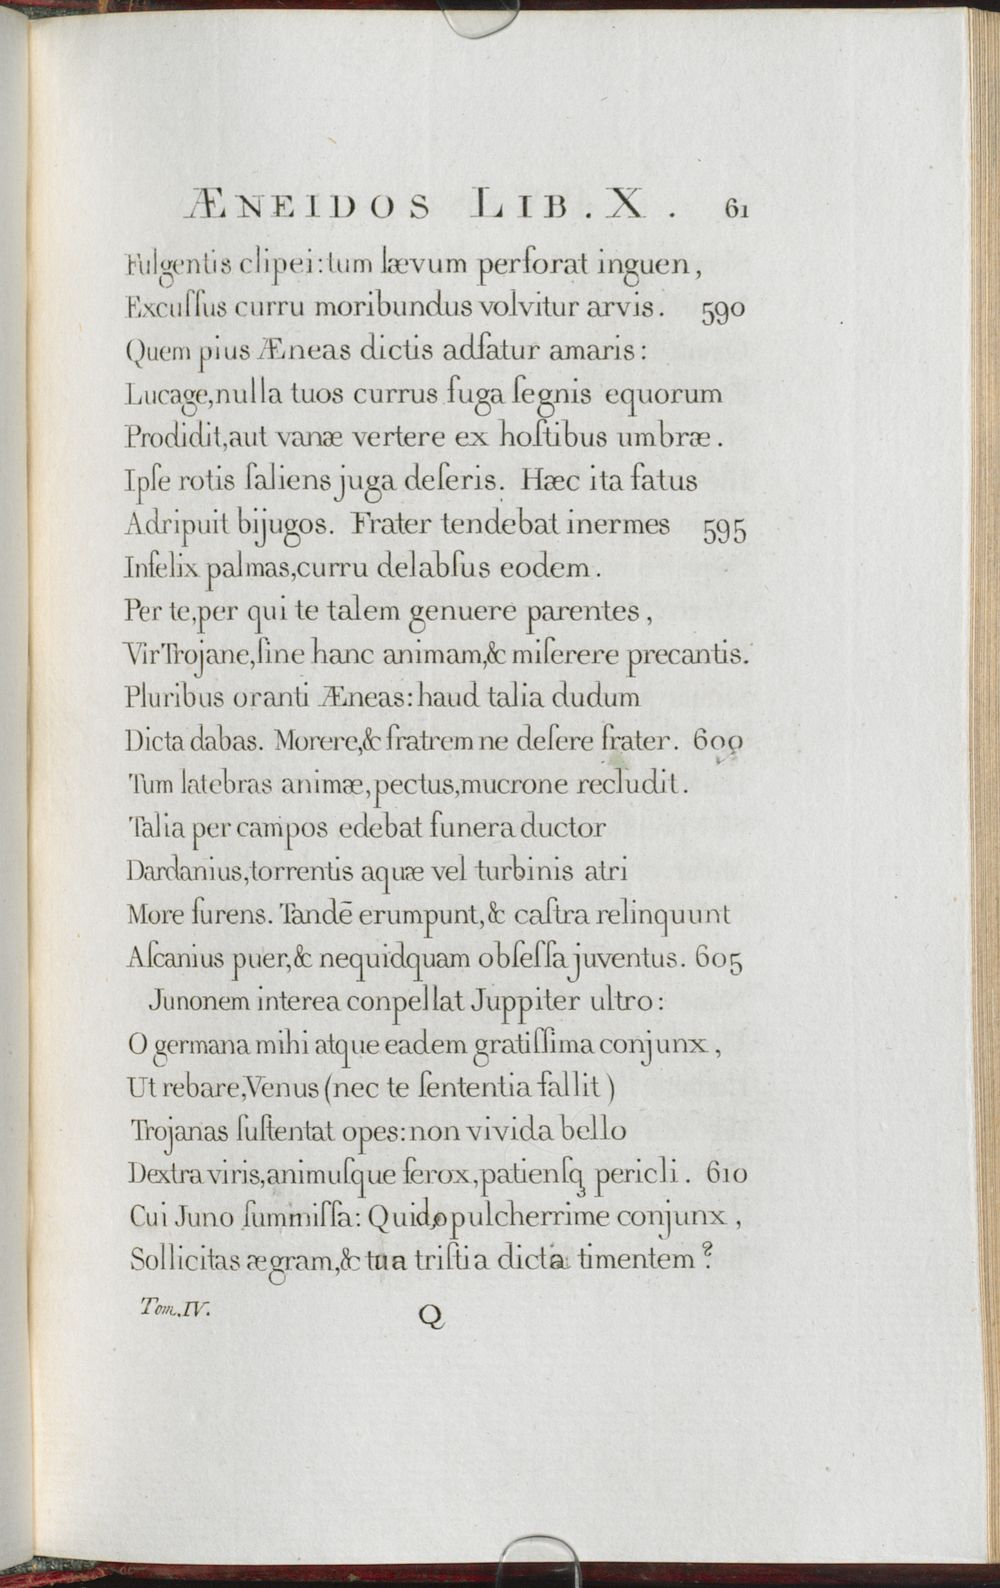 ÆNEIDOS LIB. X. 61
Fulgentis clipei: tum lævum perforat inguen,
Excuſſus curru moribundus volvitur arvis. 590
Quem pius Æneas dictis adfatur amaris:
Lucage, nulla tuos currus fuga ſegnis equorum
Prodidit, aut vanæ vertere ex hoſtibus umbræ.
Ipſe rotis ſaliens juga deſeris. Hæc ita fatus
Adripuit bijugos. Frater tendebat inermes 595
Infelix palmas, curru delabſus eodem.
Per te, per qui te talem genuere parentes,
Vir Trojane, ſine hanc animam, & miſerere precantis.
Pluribus oranti Æneas: haud talia dudum
Dicta dabas. Morere, & fratrem ne deſere frater. 600
Tum latebras animæ, pectus, mucrone recludit.
Talia per campos edebat funera ductor
Dardanius, torrentis aquæ vel turbinis atri
More furens. Tandē erumpunt, & caſtra relinquunt
Aſcanius puer, & nequidquam obſeſſa juventus. 605
Junonem interea conpellat Juppiter ultro:
O germana mihi atque eadem gratiſſima conjunx,
Ut rebare, Venus (nec te ſententia fallit)
Trojanas ſuſtentat opes: non vivida bello
Dextra viris, animuſque ferox, patienſq; pericli. 610
Cui Juno ſummiſſa: Quid, o pulcherrime conjunx,
Sollicitas ægram, & tua triſtia dicta timentem?
Tom. IV. Q